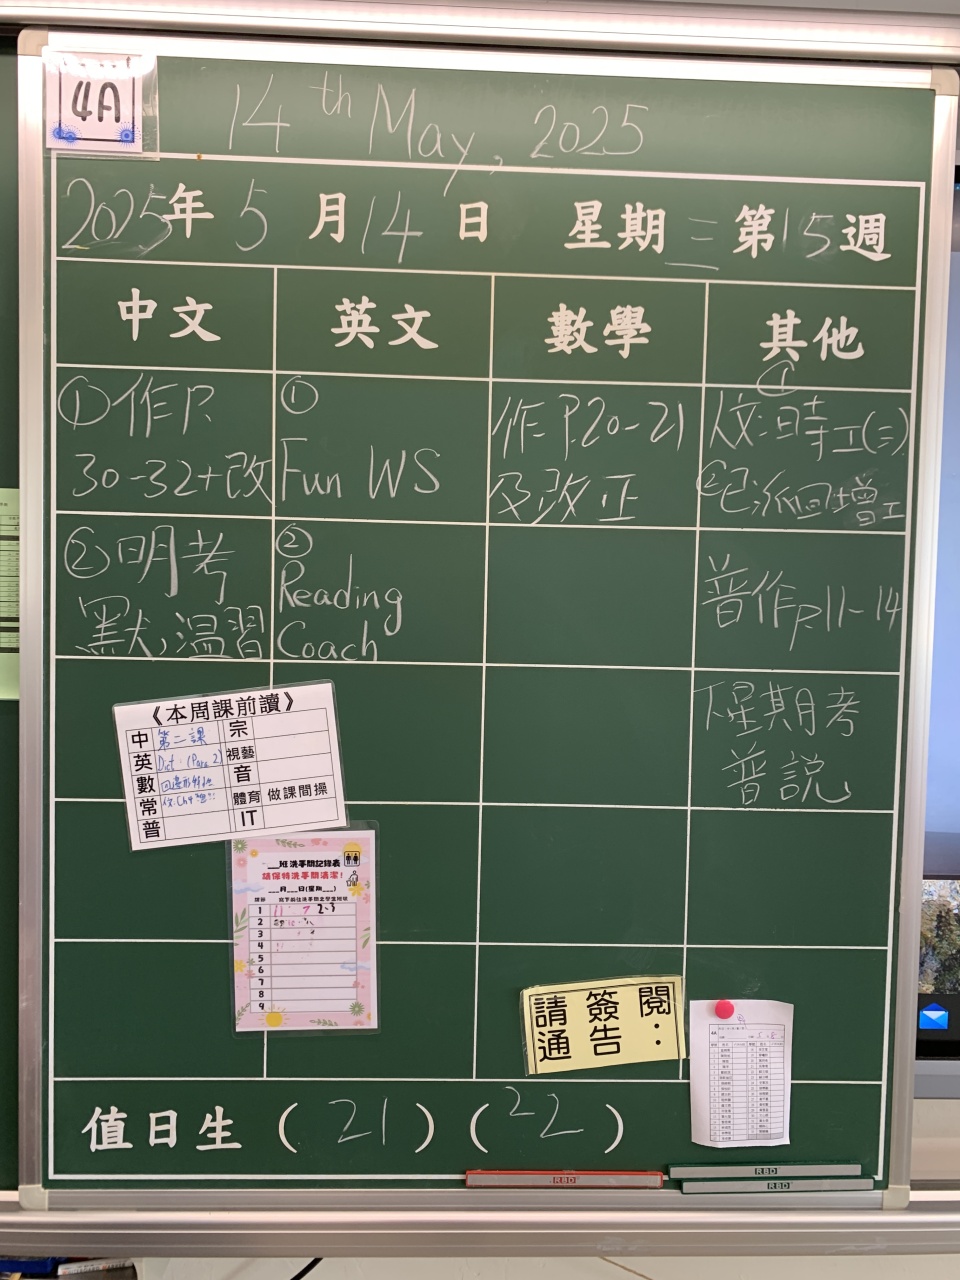 4A
14th May, 2025
2025年5月14日 星期三第15週
中文 英文 數學 其他
①作P.
30-32+改
②明考
默,溫習
①
Fun WS
②
Reading
Coach
作P.20-21
及改正
①
時工(三)
②已派回增工
普作P.11-14
下星期考
普說
《本周課前讀》
中 第二課 宗
英 Dict. (Para 2) 視藝
數 音
常 體育 做課間操
普 IT
___班洗手間記錄表
請保持洗手間清潔!
___月___日(星期___)
課節
1 11 7 2.3
2
3
4
5
6
7
8
9
請簽閱
通告:
值日生(21)(22)
4A
RBD
RBD
RBD